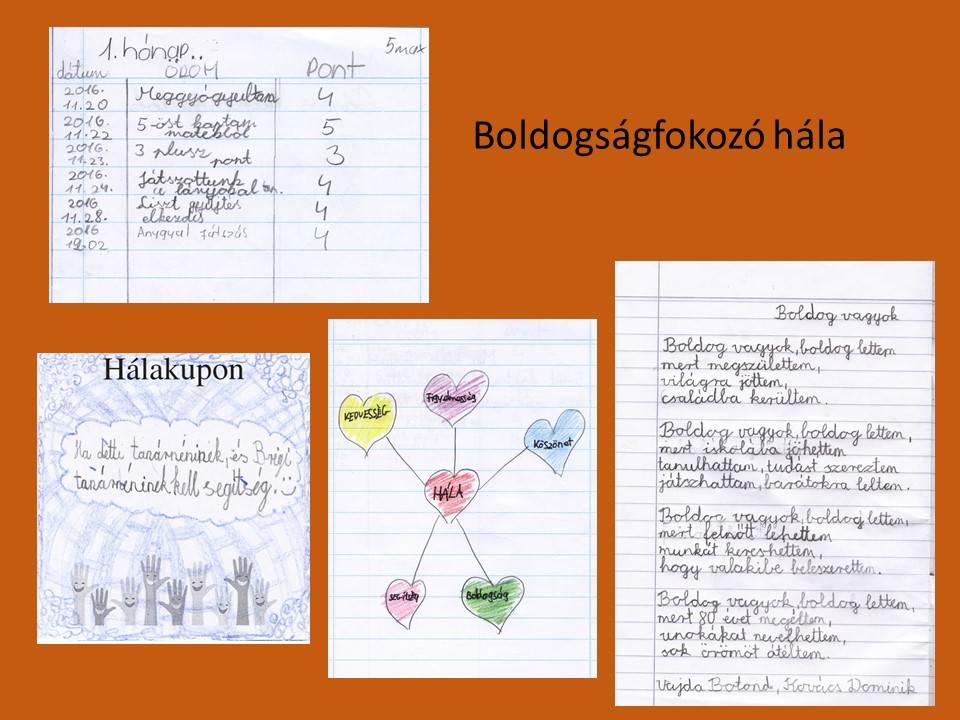 Boldogságfokozó hála
1. hónap..
5 max
dátum ÖRÖM Pont
2016. 11.20 Meggyógyultam 4
2016. 11.22 5-öst kaptam matekból 5
2016. 11.23. 3 plusz pont 3
2016. 11.24. Játszottunk a lányokkal 4
2016 11.28. Liszt gyűjtés elkezdés 4
2016 12.02 Angyal játszás 4
Hálakupon
Ha Detti tanárnéninek, és Brigi
tanárnéninek kell segítség! :)
KEDVESSÉG
Figyelmesség
Köszönet
HÁLA
segítség
Boldogság
Boldog vagyok
Boldog vagyok, boldog lettem
mert megszülettem,
világra jöttem,
családba kerültem.
Boldog vagyok, boldog lettem,
mert iskolába jöhettem
tanulhattam, tudást szereztem
játszhattam, barátokra leltem.
Boldog vagyok, boldog lettem,
mert felnőtt lehettem
munkát kereshettem,
hogy valakibe beleszerettem.
Boldog vagyok, boldog lettem,
mert 80 évet megéltem,
unokákat nevelhettem,
sok örömöt átéltem.
Vajda Botond, Kovács Dominik